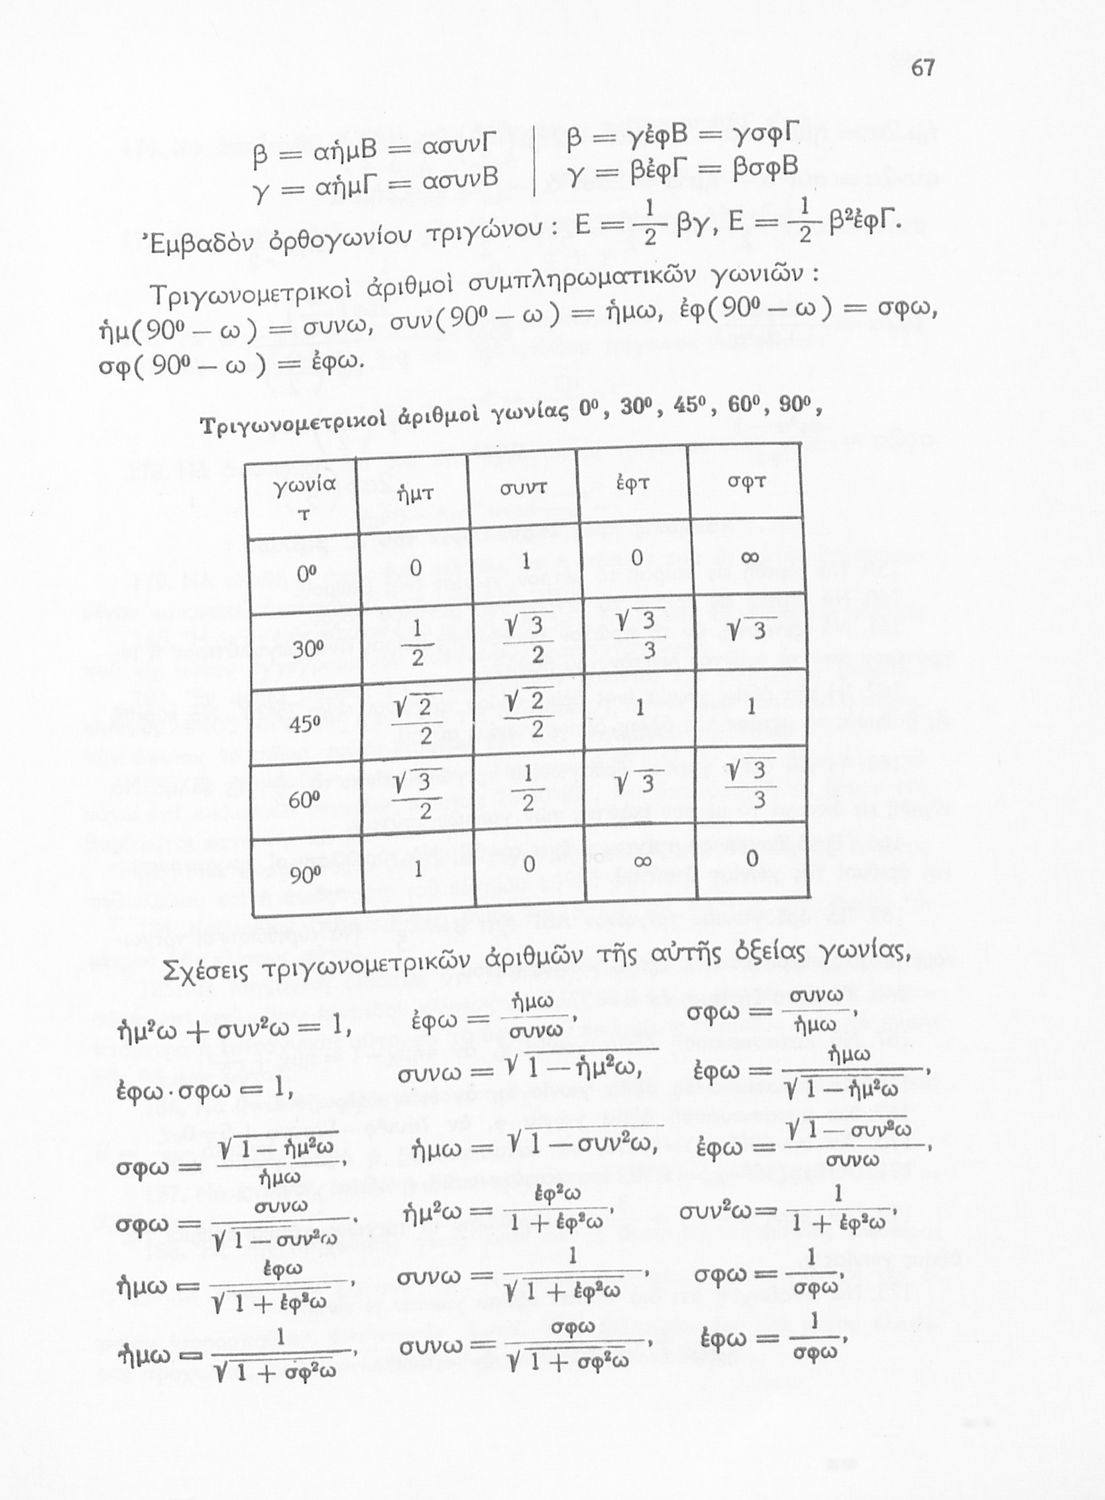 67
β = αἡμΒ = ασυνΓ | β = γἐφΒ = γσφΓ
γ = αἡμΓ = ασυνΒ | γ = βἐφΓ = βσφΒ
Ἐμβαδὸν ὀρθογωνίου τριγώνου : Ε = 1/2 βγ, Ε = 1/2 β²ἐφΓ.
Τριγωνομετρικοὶ ἀριθμοὶ συμπληρωματικῶν γωνιῶν :
ἡμ(90⁰ — ω ) = συνω, συν(90⁰ — ω ) = ἡμω, ἐφ(90⁰ — ω ) = σφω,
σφ( 90⁰ — ω ) = ἐφω.
Τριγωνομετρικοὶ ἀριθμοὶ γωνίας 0⁰, 30⁰, 45⁰, 60⁰, 90⁰,
γωνία τ | ἡμτ | συντ | ἐφτ | σφτ
0⁰ | 0 | 1 | 0 | ∞
30⁰ | 1/2 | √3/2 | √3/3 | √3
45⁰ | √2/2 | √2/2 | 1 | 1
60⁰ | √3/2 | 1/2 | √3 | √3/3
90⁰ | 1 | 0 | ∞ | 0
Σχέσεις τριγωνομετρικῶν ἀριθμῶν τῆς αὐτῆς ὀξείας γωνίας,
ἡμ²ω + συν²ω = 1, ἐφω = ἡμω/συνω, σφω = συνω/ἡμω,
ἐφω·σφω = 1, συνω = √(1 — ἡμ²ω), ἐφω = ἡμω/√(1 — ἡμ²ω),
σφω = √(1 — ἡμ²ω)/ἡμω, ἡμω = √(1 — συν²ω), ἐφω = √(1 — συν²ω)/συνω,
σφω = συνω/√(1 — συν²ω). ἡμ²ω = ἐφ²ω/(1 + ἐφ²ω), συν²ω = 1/(1 + ἐφ²ω),
ἡμω = ἐφω/√(1 + ἐφ²ω), συνω = 1/√(1 + ἐφ²ω), σφω = 1/σφω,
ἡμω = 1/√(1 + σφ²ω), συνω = σφω/√(1 + σφ²ω), ἐφω = 1/σφω,